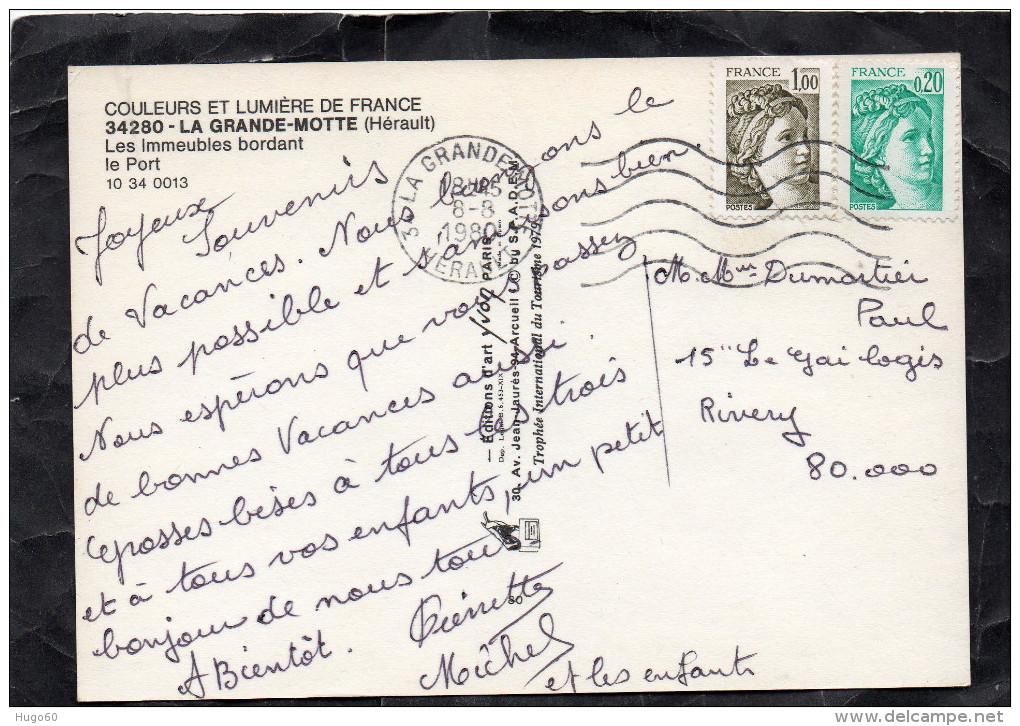 COULEURS ET LUMIÈRE DE FRANCE
34280 - LA GRANDE-MOTTE (Hérault)
Les Immeubles bordant
le Port
10 34 0013
Joyeux Souvenirs
de Vacances. Nous bronzons le
plus possible et s'amusons bien.
Nous espérons que vous passez
de bonnes Vacances aussi.
Grosses bises à tous les trois
et à tous vos enfants, un petit
bonjour de nous tous
A Bientôt.
Pierrette
Michel
et les enfants
34 LA GRANDE MOTTE
18H15
8-8
1980
HERAULT
— Editions d'art Yvon PARIS
30, Av. Jean-Jaurès-94-Arcueil © by S.P.A.D.E.M
Trophée International du Tourisme 1979
80
FRANCE
1,00
POSTES
FRANCE
0,20
POSTES
M. Mme Dumortier
Paul
15 Le Gai Logis
Rivery
80.000
Hugo60